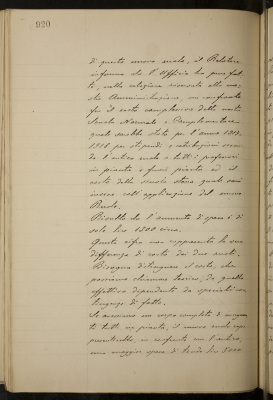 920
di questo nuovo ruolo, il Relatore
informa che l'Ufficio ha pure fat
to, nella relazione inviata alla
Amministrazione, un confronto
fra il costo complessivo della nostra
Scuola Normale e Complementare
quale sarebbe stato per l'anno 1917-
1918 per stipendi e retribuzioni secon
do l'antico ruolo a tutti i professori
in pianta e fuori pianta ed il
costo della scuola stessa quale sarà
invece coll'applicazione del nuovo
Ruolo.
Risulta che l'aumento di spesa è di
sole lire 1800 circa.
Questa cifra non rappresenta la vera
differenza di costo dei due ruoli.
Bisogna distinguere il costo, che
possiamo chiamare teorico, da quello
effettivo dipendente da speciali con
tingenze di fatto.
Se avessimo un corpo completo di insegnan
ti tutti in pianta, il nuovo ruolo rap
presenterebbe, in confronto con l'antico,
una maggior spesa di lire